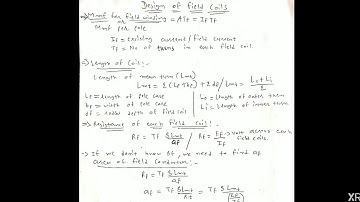 Design of field Coils
→ Mmf per field winding = ATf = If Tf
Mmf per pole
If = exciting current / field current
Tf = No of turns in each field coil.
→ Length of Coil:-
Length of mean turn (Lmt)
Lmt = 2(Lp+bp) + 2df / Lmt = Lo+Li / 2
Lp = length of pole core
bp = width of pole core
df = radial depth of field coil
Lo = length of outer turn
Li = length of inner turn
→ Resistance of each field coil:-
Rf = Tf ρ Lmt / af / Rf = Ef / If → volt across each field coil.
→ If we don't know af, we need to find af
area of field conductor:-
Rf = Tf ρ Lmt / af
af = Tf ρ Lmt / Rf = Tf ρ Lmt / (Ef / If)
XR